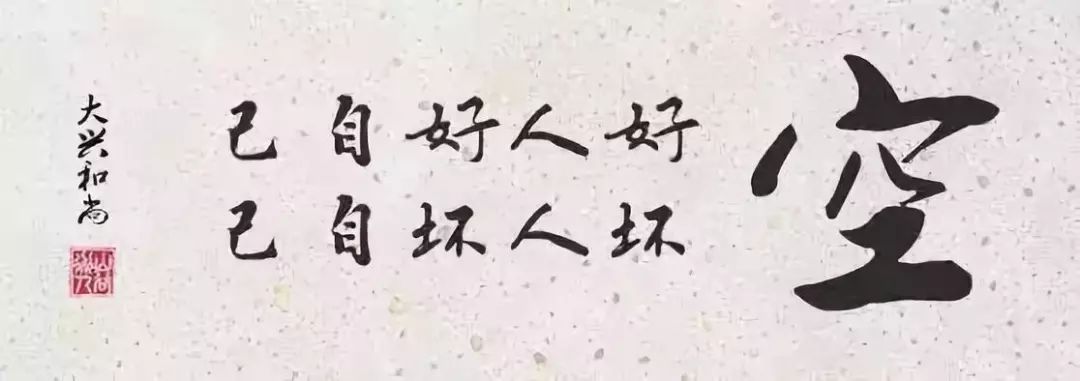 空
好人好自己
坏人坏自己
大兴和尚